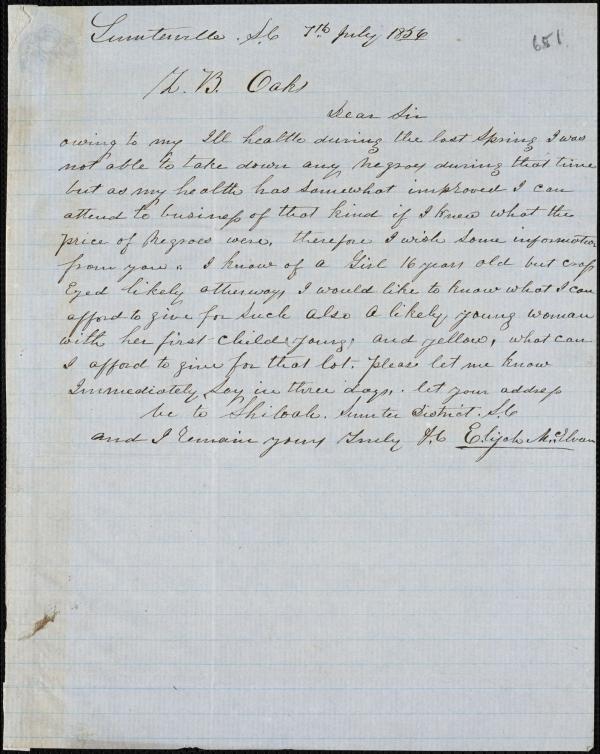 Sumterville. S.C 7th July 1856
651
Z. B. Oaks
Dear Sir
owing to my Ill health during the last Spring I was
not able to take down any Negroes during that time
but as my health has Somewhat improved I can
attend to business of that kind if I knew what the
price of Negroes were, therefore I wish Some information
from you. I know of a Girl 16 years old but cross
Eyed likely otherways I would like to know what I can
afford to give for Such also a likely young woman
with her first child young, and yellow, what can
I afford to give for that lot. please let me know
Immediately Say in three days. let your address
be to Shiloah. Sumter District. S.C
and I Remain yours Truly &c Elijah McElvan